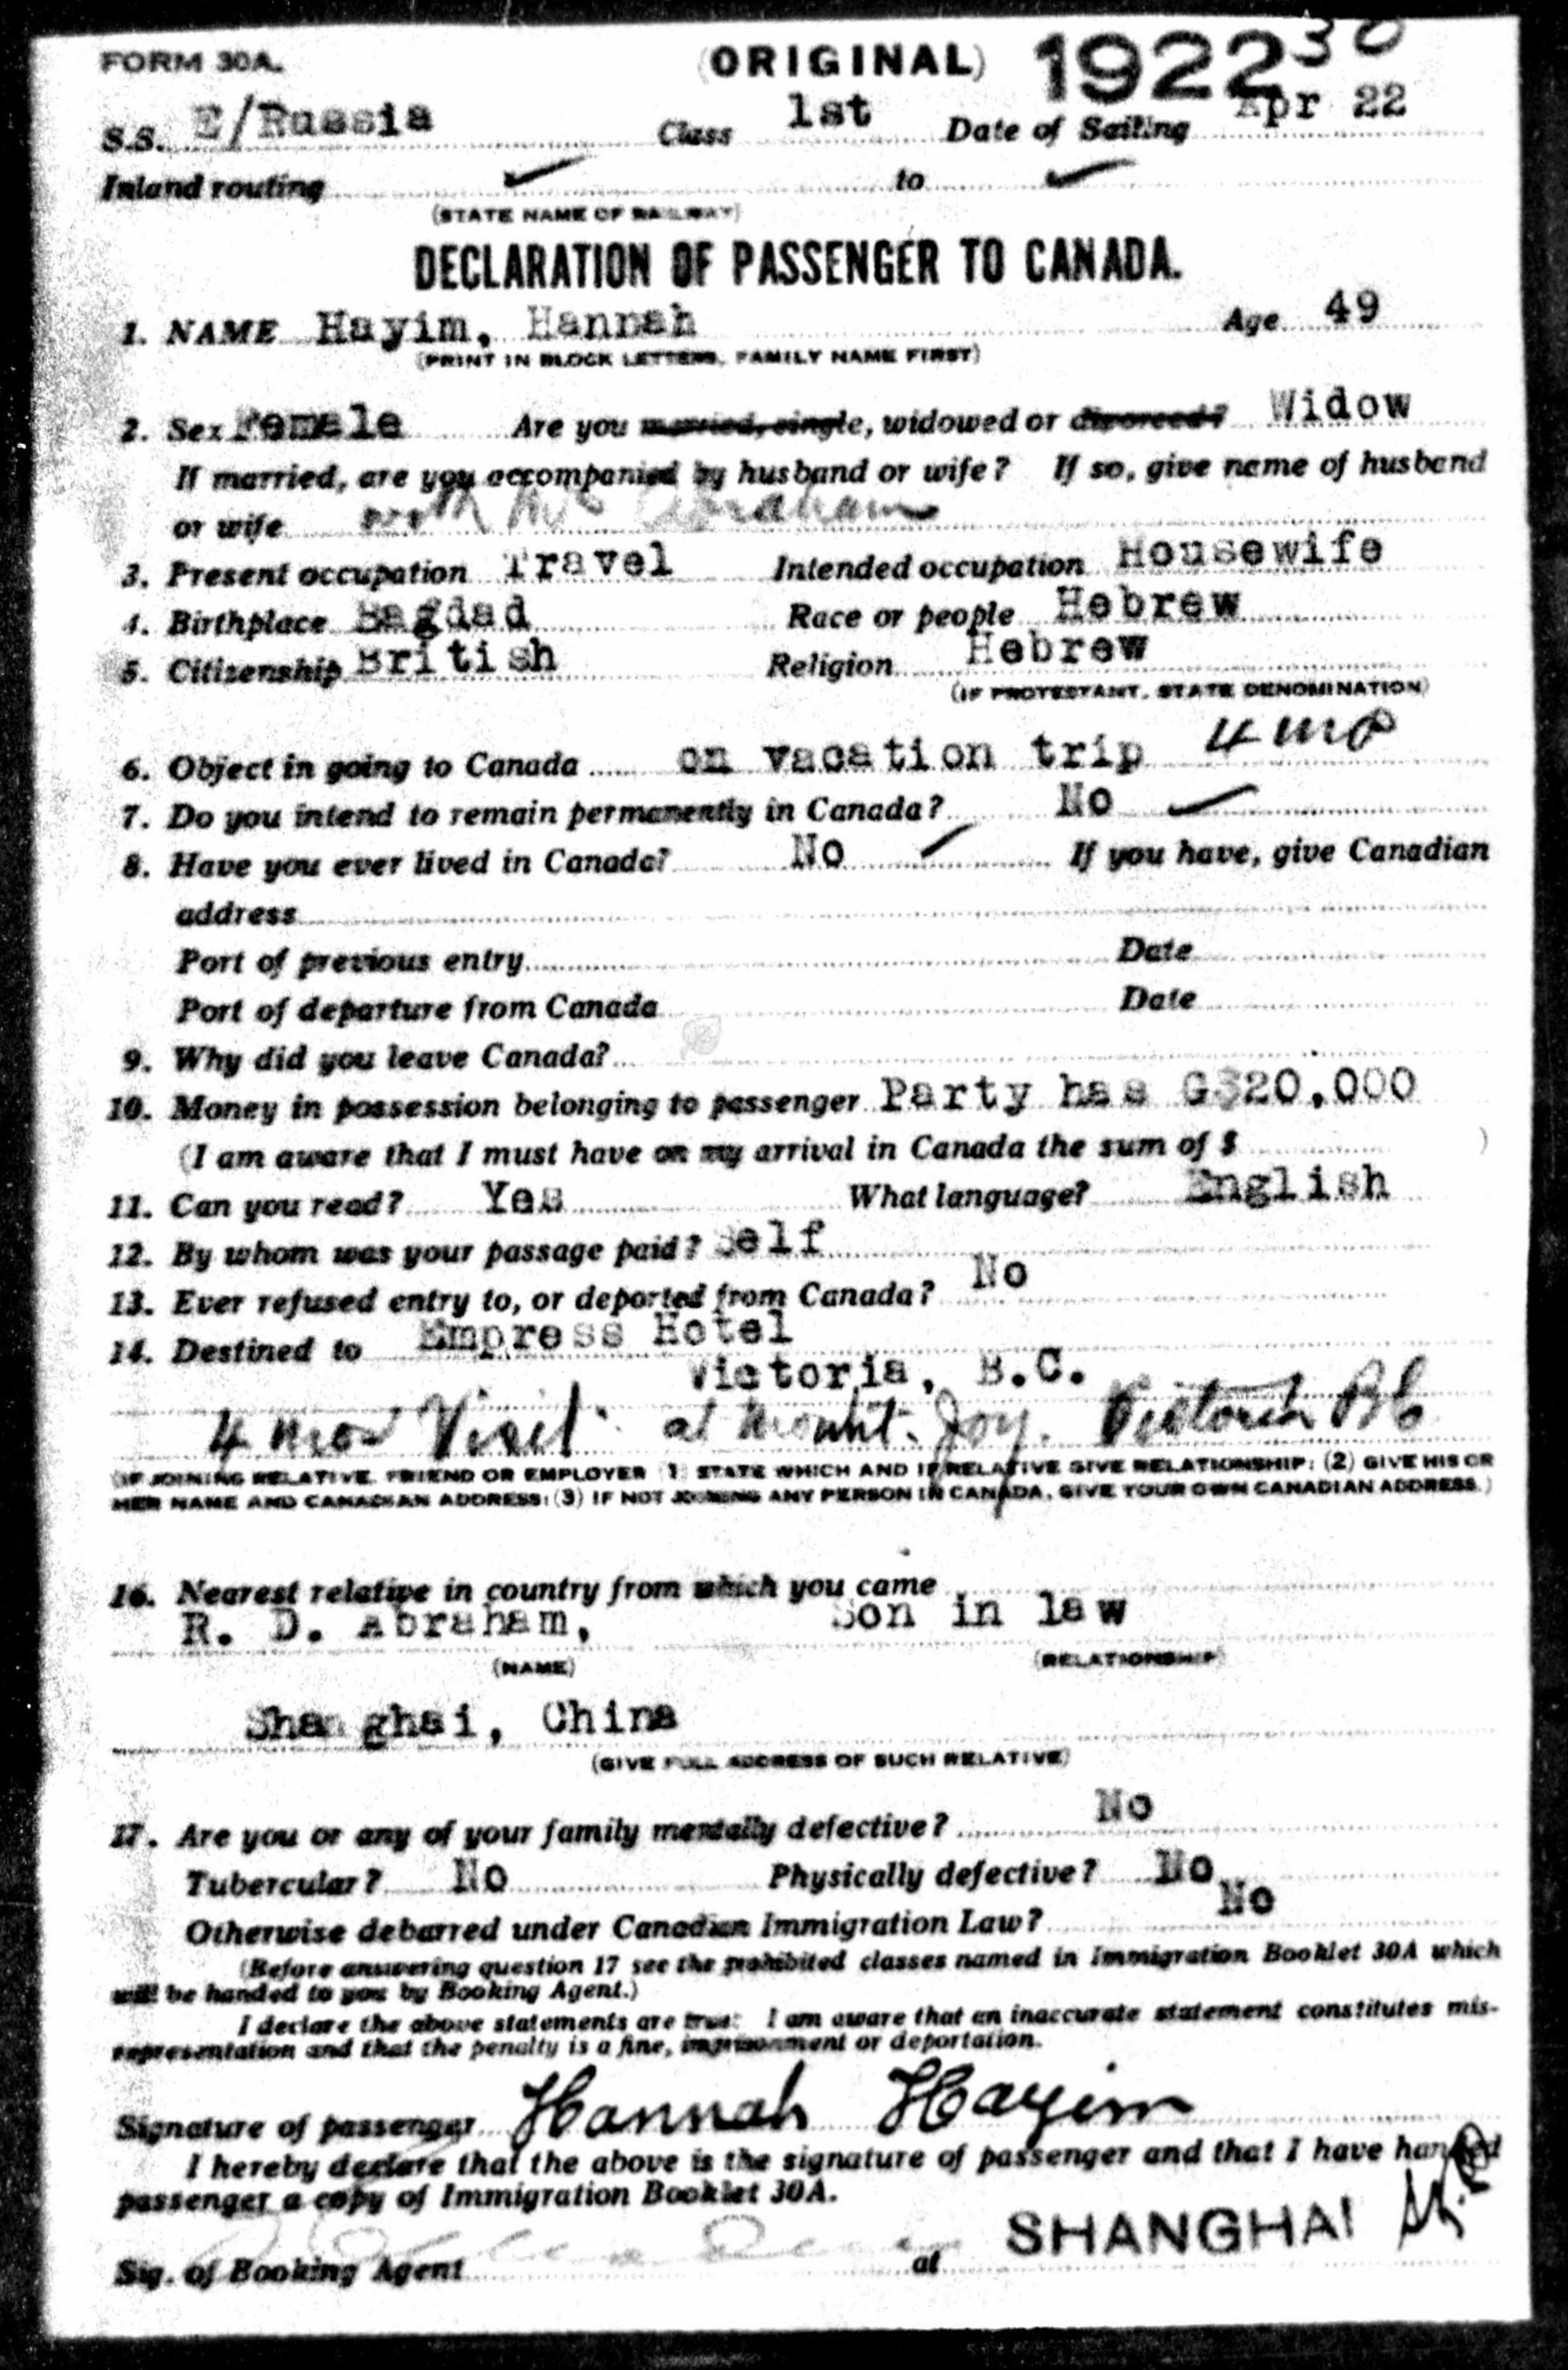 FORM 30A. (ORIGINAL) 1922 30
S.S. E/Russia Class 1st Date of Sailing Apr 22
Inland routing to
(STATE NAME OF RAILWAY)
DECLARATION OF PASSENGER TO CANADA.
1. NAME Hayim, Hannah Age 49
(PRINT IN BLOCK LETTERS, FAMILY NAME FIRST)
2. Sex Female Are you married, single, widowed or divorced? Widow
If married, are you accompanied by husband or wife? If so, give name of husband
or wife with Mrs Abraham
3. Present occupation Travel Intended occupation Housewife
4. Birthplace Bagdad Race or people Hebrew
5. Citizenship British Religion Hebrew
(IF PROTESTANT, STATE DENOMINATION)
6. Object in going to Canada on vacation trip 4 mo
7. Do you intend to remain permanently in Canada? No
8. Have you ever lived in Canada? No If you have, give Canadian
address
Port of previous entry Date
Port of departure from Canada Date
9. Why did you leave Canada?
10. Money in possession belonging to passenger Party has G$20,000
(I am aware that I must have on my arrival in Canada the sum of $ )
11. Can you read? Yes What language? English
12. By whom was your passage paid? Self
13. Ever refused entry to, or deported from Canada? No
14. Destined to Empress Hotel
Victoria, B.C.
4 mos Visit at Mount Joy. Victoria BC
(IF JOINING RELATIVE, FRIEND OR EMPLOYER (1) STATE WHICH AND IF RELATIVE GIVE RELATIONSHIP; (2) GIVE HIS OR
HER NAME AND CANADIAN ADDRESS; (3) IF NOT JOINING ANY PERSON IN CANADA, GIVE YOUR OWN CANADIAN ADDRESS.)
16. Nearest relative in country from which you came
R. D. Abraham, Son in law
(NAME) (RELATIONSHIP)
Shanghai, China
(GIVE FULL ADDRESS OF SUCH RELATIVE)
17. Are you or any of your family mentally defective? No
Tubercular? No Physically defective? No
Otherwise debarred under Canadian Immigration Law? No
(Before answering question 17 see the prohibited classes named in Immigration Booklet 30A which
will be handed to you by Booking Agent.)
I declare the above statements are true: I am aware that an inaccurate statement constitutes mis-
representation and that the penalty is a fine, imprisonment or deportation.
Signature of passenger Hannah Hayim
I hereby declare that the above is the signature of passenger and that I have handed
passenger a copy of Immigration Booklet 30A.
Sig. of Booking Agent at SHANGHAI